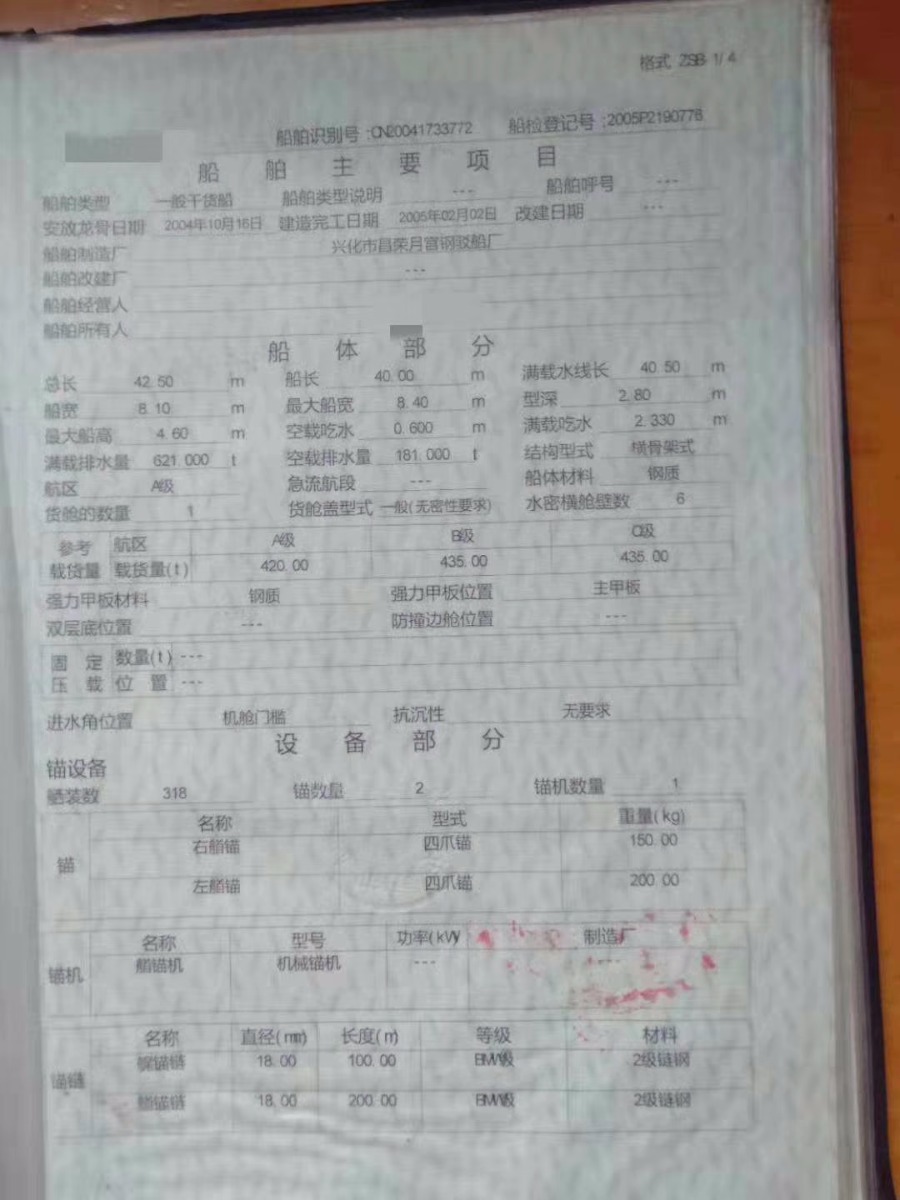 格式 ZSB-1/4
船舶识别号:CN20041733772 船检登记号:2005P2190776
船舶主要项目
船舶类型 一般干货船 船舶类型说明 --- 船舶呼号 ---
安放龙骨日期 2004年10月16日 建造完工日期 2005年02月02日 改建日期 ---
船舶制造厂 兴化市昌荣月宫钢驳船厂
船舶改建厂 ---
船舶经营人
船舶所有人
船体部分
总长 42.50 m 船长 40.00 m 满载水线长 40.50 m
船宽 8.10 m 最大船宽 8.40 m 型深 2.80 m
最大船高 4.60 m 空载吃水 0.600 m 满载吃水 2.330 m
满载排水量 621.000 t 空载排水量 181.000 t 结构型式 横骨架式
航区 A级 急流航段 --- 船体材料 钢质
货舱的数量 1 货舱盖型式 一般(无密性要求) 水密横舱壁数 6
参考 航区 A级 B级 C级
载货量 载货量(t) 420.00 435.00 435.00
强力甲板材料 钢质 强力甲板位置 主甲板
双层底位置 --- 防撞边舱位置 ---
固定 数量(t) ---
压载 位置 ---
进水角位置 机舱门槛 抗沉性 无要求
设备部分
锚设备
舾装数 318 锚数量 2 锚机数量 1
名称 型式 重量(kg)
锚 右艏锚 四爪锚 150.00
左艏锚 四爪锚 200.00
名称 型号 功率(kW) 制造厂
锚机 艏锚机 机械锚机 --- ---
名称 直径(mm) 长度(m) 等级 材料
锚链 艉锚链 18.00 100.00 BM/级 2级链钢
艏锚链 18.00 200.00 BM/级 2级链钢